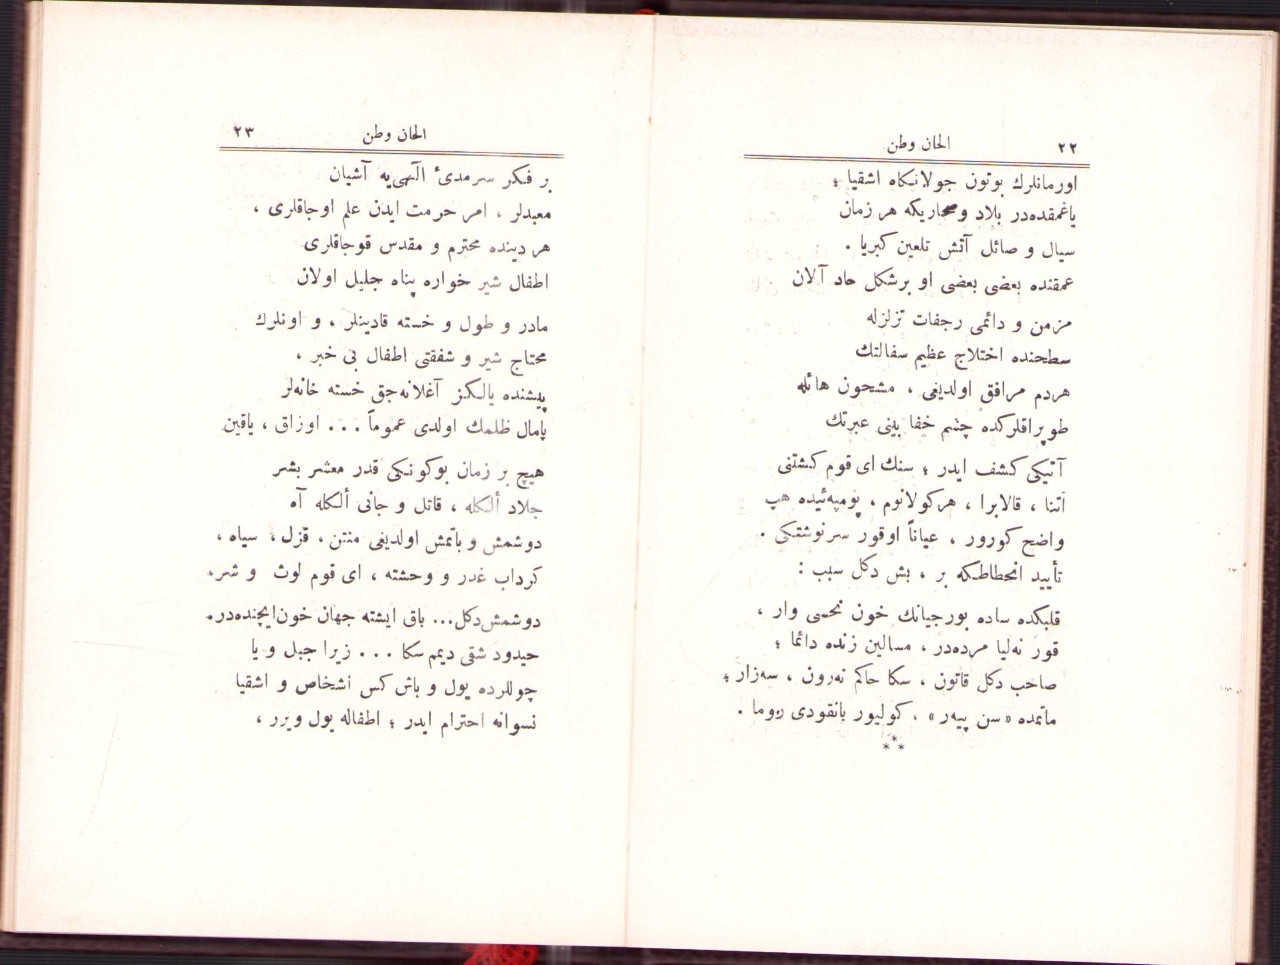 ٢٢
الحان وطن
اورمانلرك بوتون جولانكاه اشقيا ؛
ياغمقده‌در بلاد و صحاريكه هر زمان
سيال و صائل آتش تلعين كبريا .
عمقنده بعضى بعضى او برشكل حاد آلان
مزمن و دائمى رجفات تزلزله
سطحنده اختلاج عظيم سفالتك
هردم مرافق اولديغى ، مشحون هائله
طوپراقلركده چشم خفا بينى عبرتك
آتيكى كشف ايدر ؛ سنك اى قوم كشتنى
آتنا ، قالابرا ، هركولانوم ، پومپه‌ئيده هپ
واضح كورور ، عياناً اوقور سرنوشتكى .
تأييد انحطاطكه بر ، بش دكل سبب :
قلبكده ساده بورجيانك خون نحسى وار ،
قور نه‌ليا مرده‌در ، مسالين زنده دائما ؛
صاحب دكل قاتون ، سكا حاكم نه‌رون ، سه‌زار ؛
ماتمده «سن پيه‌ر» ، كوليور بانقودى روما .
* * *
٢٣
الحان وطن
بر فكر سرمدئ الٓهى‌يه آشيان
معبدلر ، امر حرمت ايدن علم اوجاقلرى ،
هر دينده محترم و مقدس قوجاقلرى
اطفال شير خواره پناه جليل اولان
مادر و طول و خسته قادينلر ، و اونلرك
محتاج شير و شفقتى اطفال بى خبر ،
پيشنده يالكز آغلانه‌جق خسته خانه‌لر
پامال ظلمك اولدى عموماً ... اوزاق ، ياقين
هيچ بر زمان بوكونكى قدر معشر بشر
جلاد ألكله ، قاتل و جانى ألكله آه
دوشمش و باتمش اولديغى منتن ، قزل ، سياه ،
كرداب غدر و وحشته ، اى قوم لوث و شر.
دوشمش دكل... باق ايشته جهان خون ايچنده‌در.
حيدود شقى ديمم سكا ... زيرا جبل و يا
چوللرده يول و باش كس اشخاص و اشقيا
نسوانه احترام ايدر ؛ اطفاله يول ويرر ،